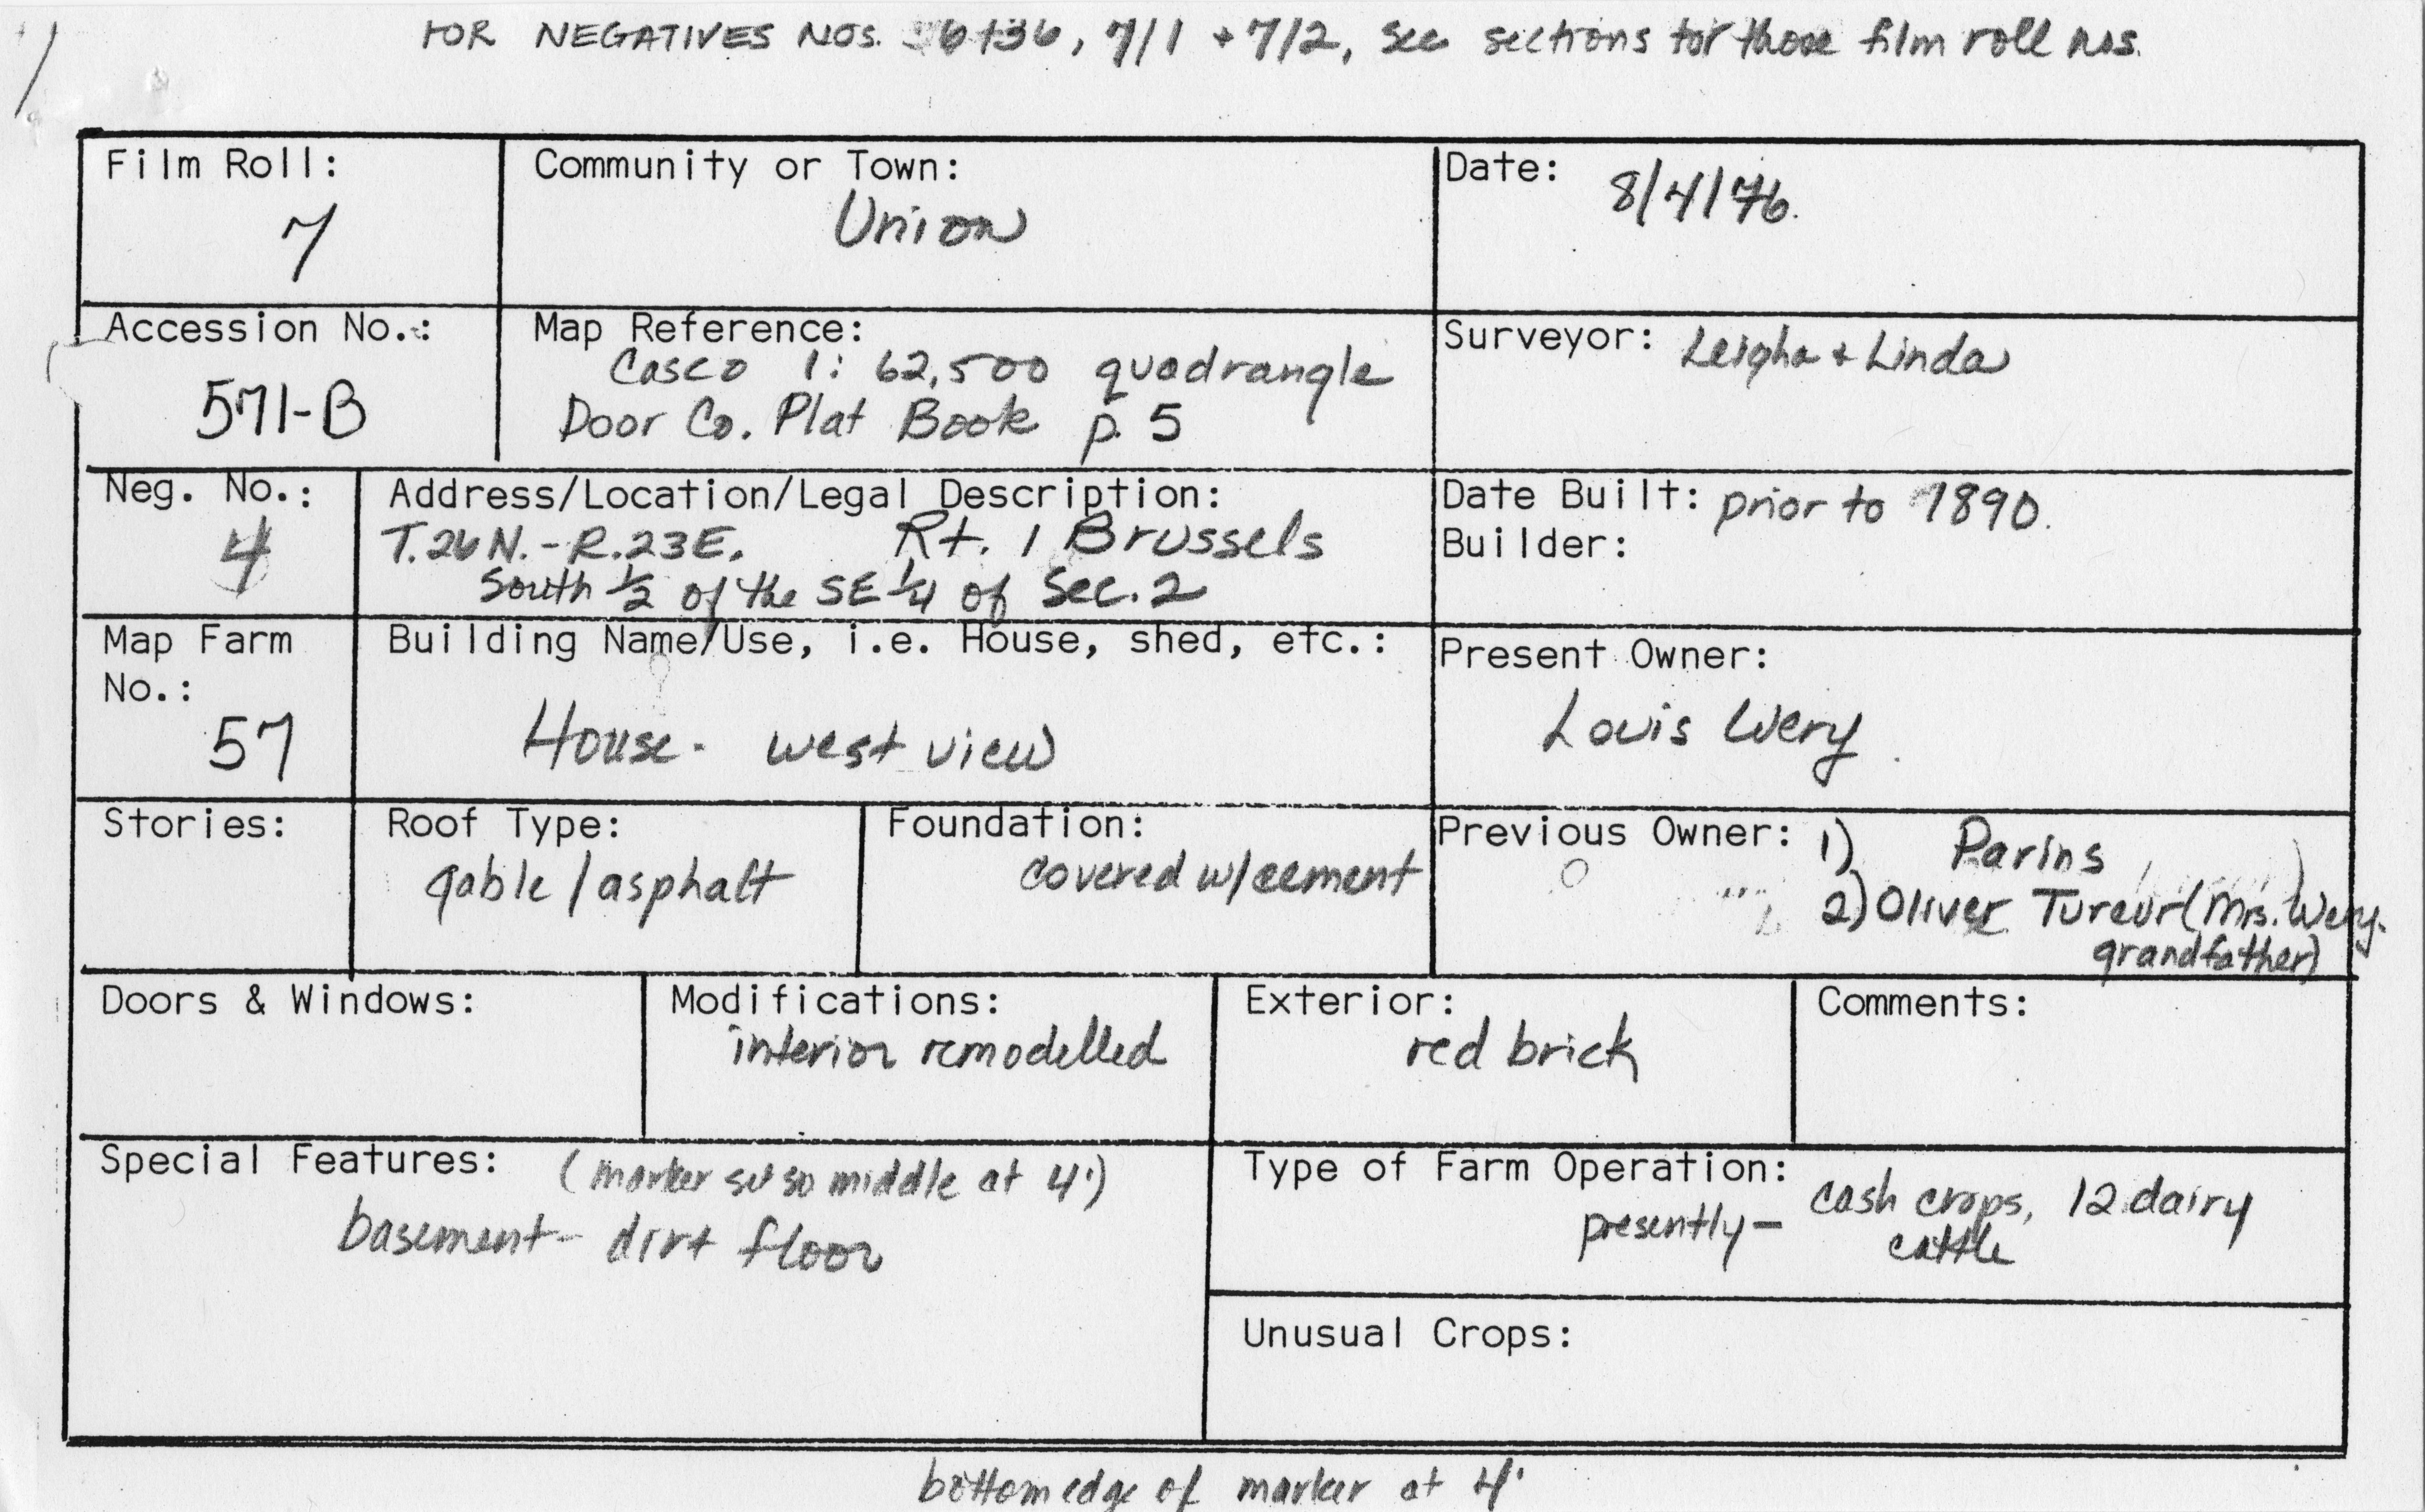 FOR NEGATIVES NOS. 7/1 + 7/2, see sections for those film roll nos.
Film Roll:
7
Community or Town:
Union
Date: 8/4/76.
Accession No.:
571-B
Map Reference:
Casco 1:62,500 quadrangle
Door Co. Plat Book p. 5
Surveyor: Leigha + Linda
Neg. No.:
4
Address/Location/Legal Description:
T.26N.-R.23E. Rt. 1 Brussels
South 1/2 of the SE 1/4 of Sec. 2
Date Built: prior to 1890.
Builder:
Map Farm
No.:
57
Building Name/Use, i.e. House, shed, etc.:
House - west view
Present Owner:
Louis Wery.
Stories:
Roof Type:
gable / asphalt
Foundation:
covered w/cement
Previous Owner: 1) Parins
2) Oliver (Mrs. Wery.
grandfather)
Doors & Windows:
Modifications:
interior remodelled
Exterior:
red brick
Comments:
Special Features: (marker so middle at 4')
basement - dirt floor
Type of Farm Operation:
presently - cash crops, 12 dairy
cattle
Unusual Crops:
bottom edge of marker at 4'